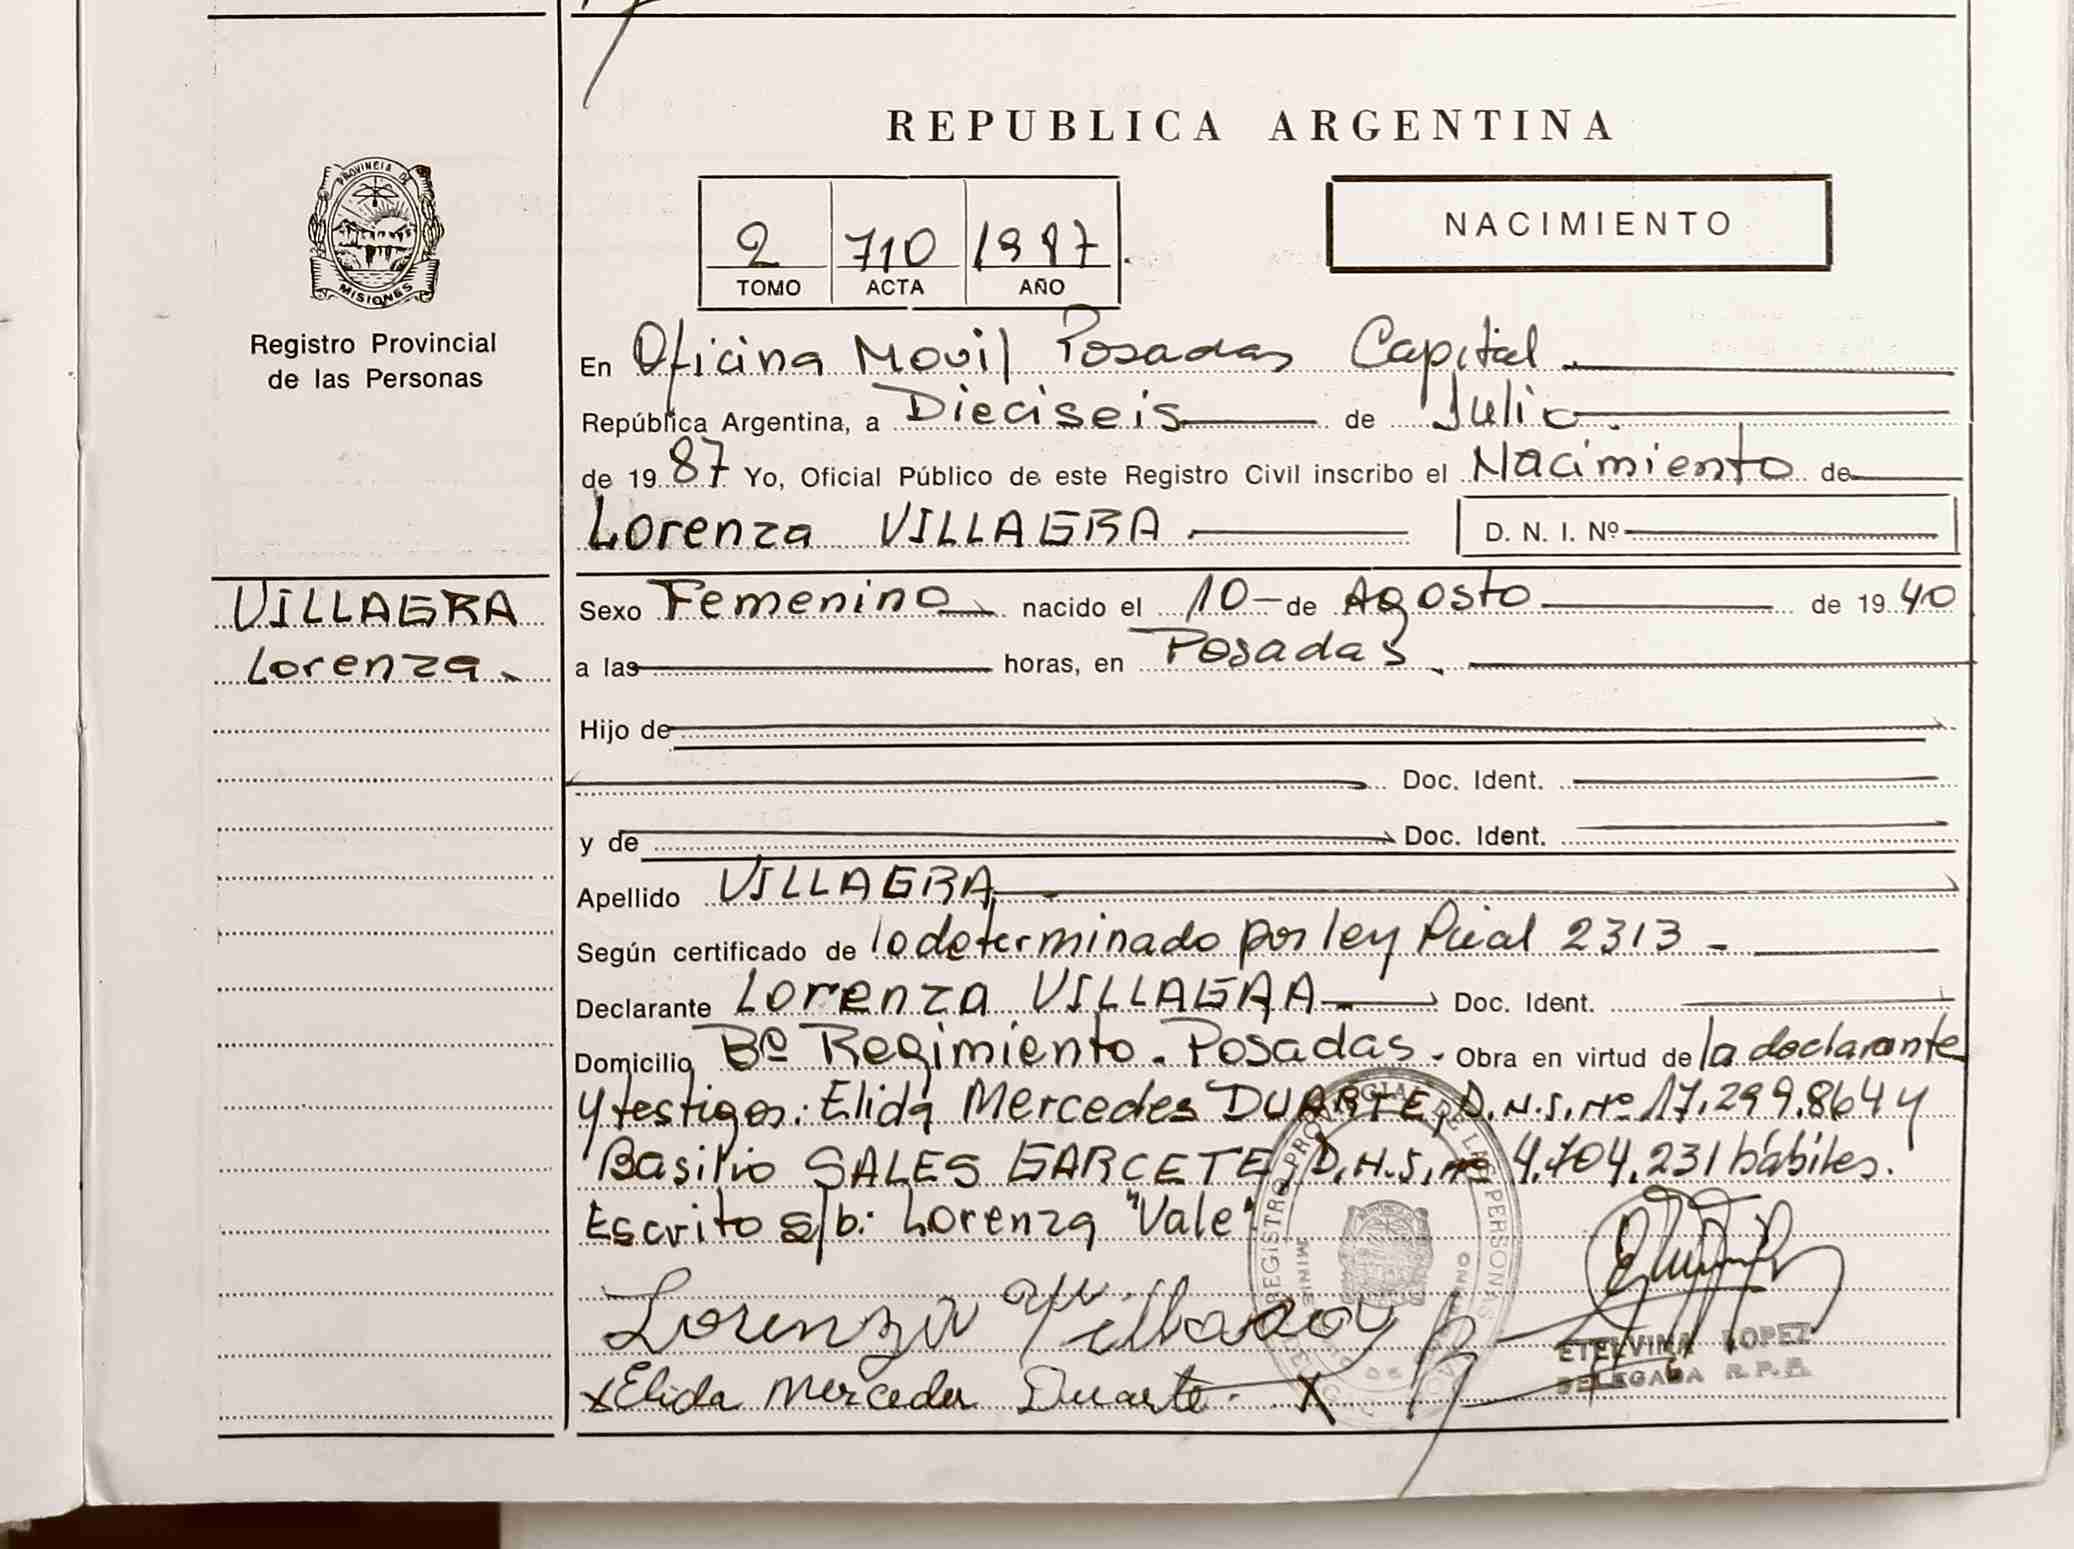 REPUBLICA ARGENTINA
PROVINCIA DE
MISIONES
Registro Provincial
de las Personas
2 710 1987
TOMO ACTA AÑO
NACIMIENTO
En Oficina Movil Posadas Capital
República Argentina, a Dieciseis de Julio.
de 1987 Yo, Oficial Público de este Registro Civil inscribo el Nacimiento de
Lorenza VILLAGRA D. N. I. Nº
VILLAGRA
Lorenza.
Sexo Femenino nacido el 10 de Agosto de 1940
a las horas, en Posadas.
Hijo de
Doc. Ident.
y de Doc. Ident.
Apellido VILLAGRA
Según certificado de lo determinado por ley Pcial 2313 -
Declarante Lorenza VILLAGRA Doc. Ident.
Domicilio Bº Regimiento. Posadas. Obra en virtud de la declarante
y testigos: Elida Mercedes DUARTE, D.N.I. Nº 17.299.864 y
Basilio SALES GARCETE, D.N.I. Nº 4.704.231 hábiles.
Escrito s/b: Lorenza "Vale"
REGISTRO PROVINCIAL DE LAS PERSONAS
Lorenza
x Elida Mercedes Duarte. X
ETELVINA LOPEZ
DELEGADA R.P.P.